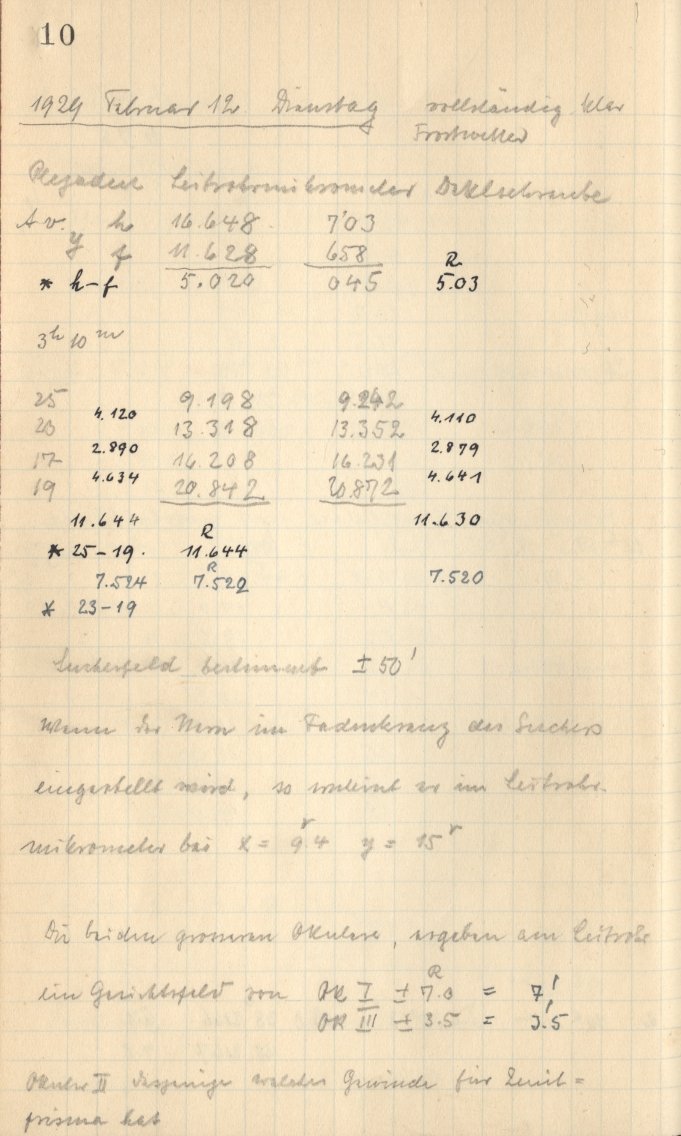 10
1929 Februar 12 Dienstag vollständig klar
Frostwetter
Plejaden Leitrohrmikrometer Deklschraube
A v. h 16.648 703
y f 11.628 658 R
* h-f 5.020 045 5.03
3h 10m
25 9.198 9.242
4.120 4.110
23 13.318 13.352
2.890 2.879
17 16.208 16.231
4.634 4.641
19 20.842 20.872
11.644 11.630
R
* 25-19. 11.644
R
7.524 7.522 7.520
* 23-19
Sucherfeld bestimmt ± 50'
Wenn der Stern im Fadenkreuz des Suchers
eingestellt wird, so erscheint er im Leitrohr-
mikrometer bei x = 9r.4 y = 15r
Die beiden grösseren Okulare, ergeben am Leitrohr
R
ein Gesichtsfeld von OK I ± 7.0 = 7'
OK III ± 3.5 = 3'.5
Okular II dasjenige welches Gewinde für Zenit=
prisma hat